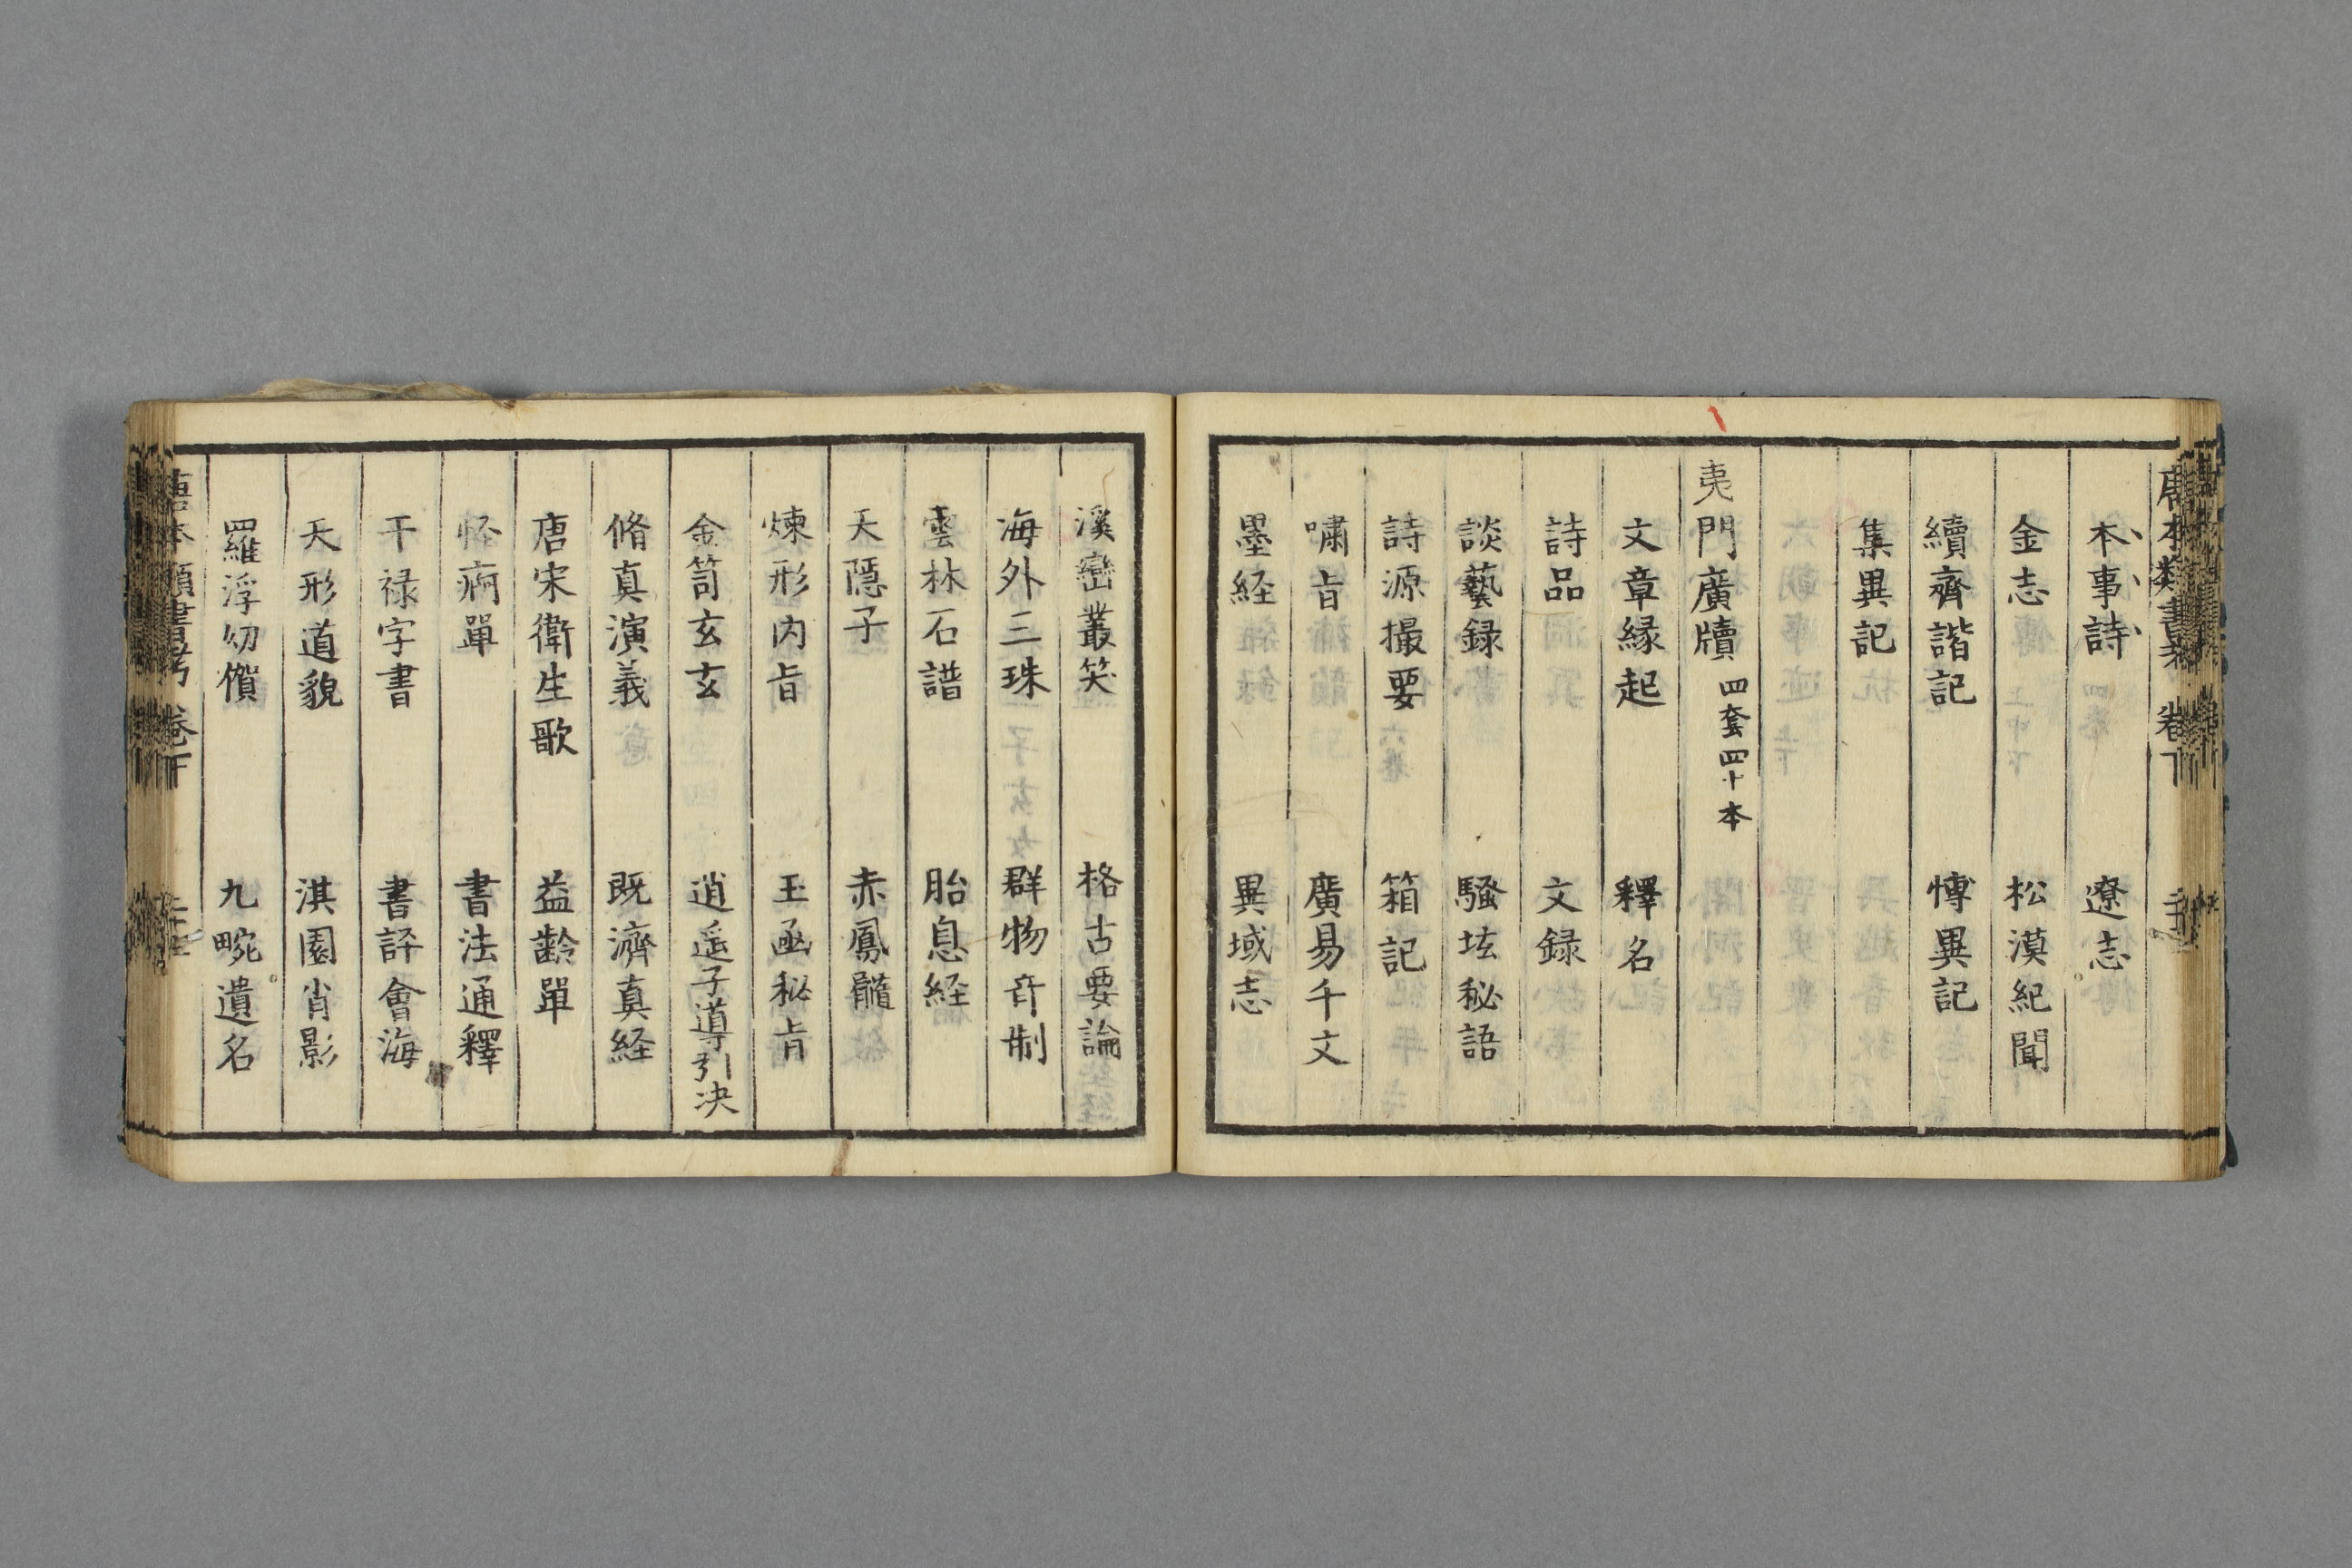 唐本類書考 卷下
本事詩 遼志
金志 松漠紀聞
續齊諧記 博異記
集異記
夷門廣牘 四套四十本
文章縁起 釋名
詩品 文録
談藝録 騷坛秘語
詩源撮要 箱記
嘯旨 廣易千文
墨経 異域志
溪巒叢笑 格古要論
海外三珠 群物奇制
雲林石譜 胎息経
天隱子 赤鳳髓
煉形内旨 玉函秘旨
金笥玄玄 逍遥子導引决
脩真演義 既濟真経
唐宋衛生歌 益齡單
怪痾單 書法通釋
干禄字書 書評會海
天形道貌 淇園肖影
羅浮幻償 九畹遺名
唐本類書考 卷下